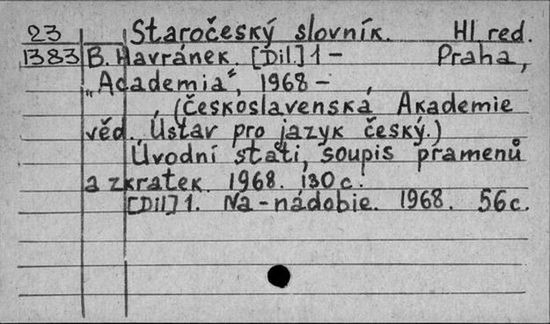 23 Staročeský slovník. Hl. red.
1383 B. Havránek. [Díl.] 1 – Praha,
„Academia“, 1968 – ,
, (Československá Akademie
věd. Ústav pro jazyk český.)
Úvodní stati, soupis pramenů
a zkratek. 1968. 130 c.
[Díl] 1. Na-nádobie. 1968. 56 c.